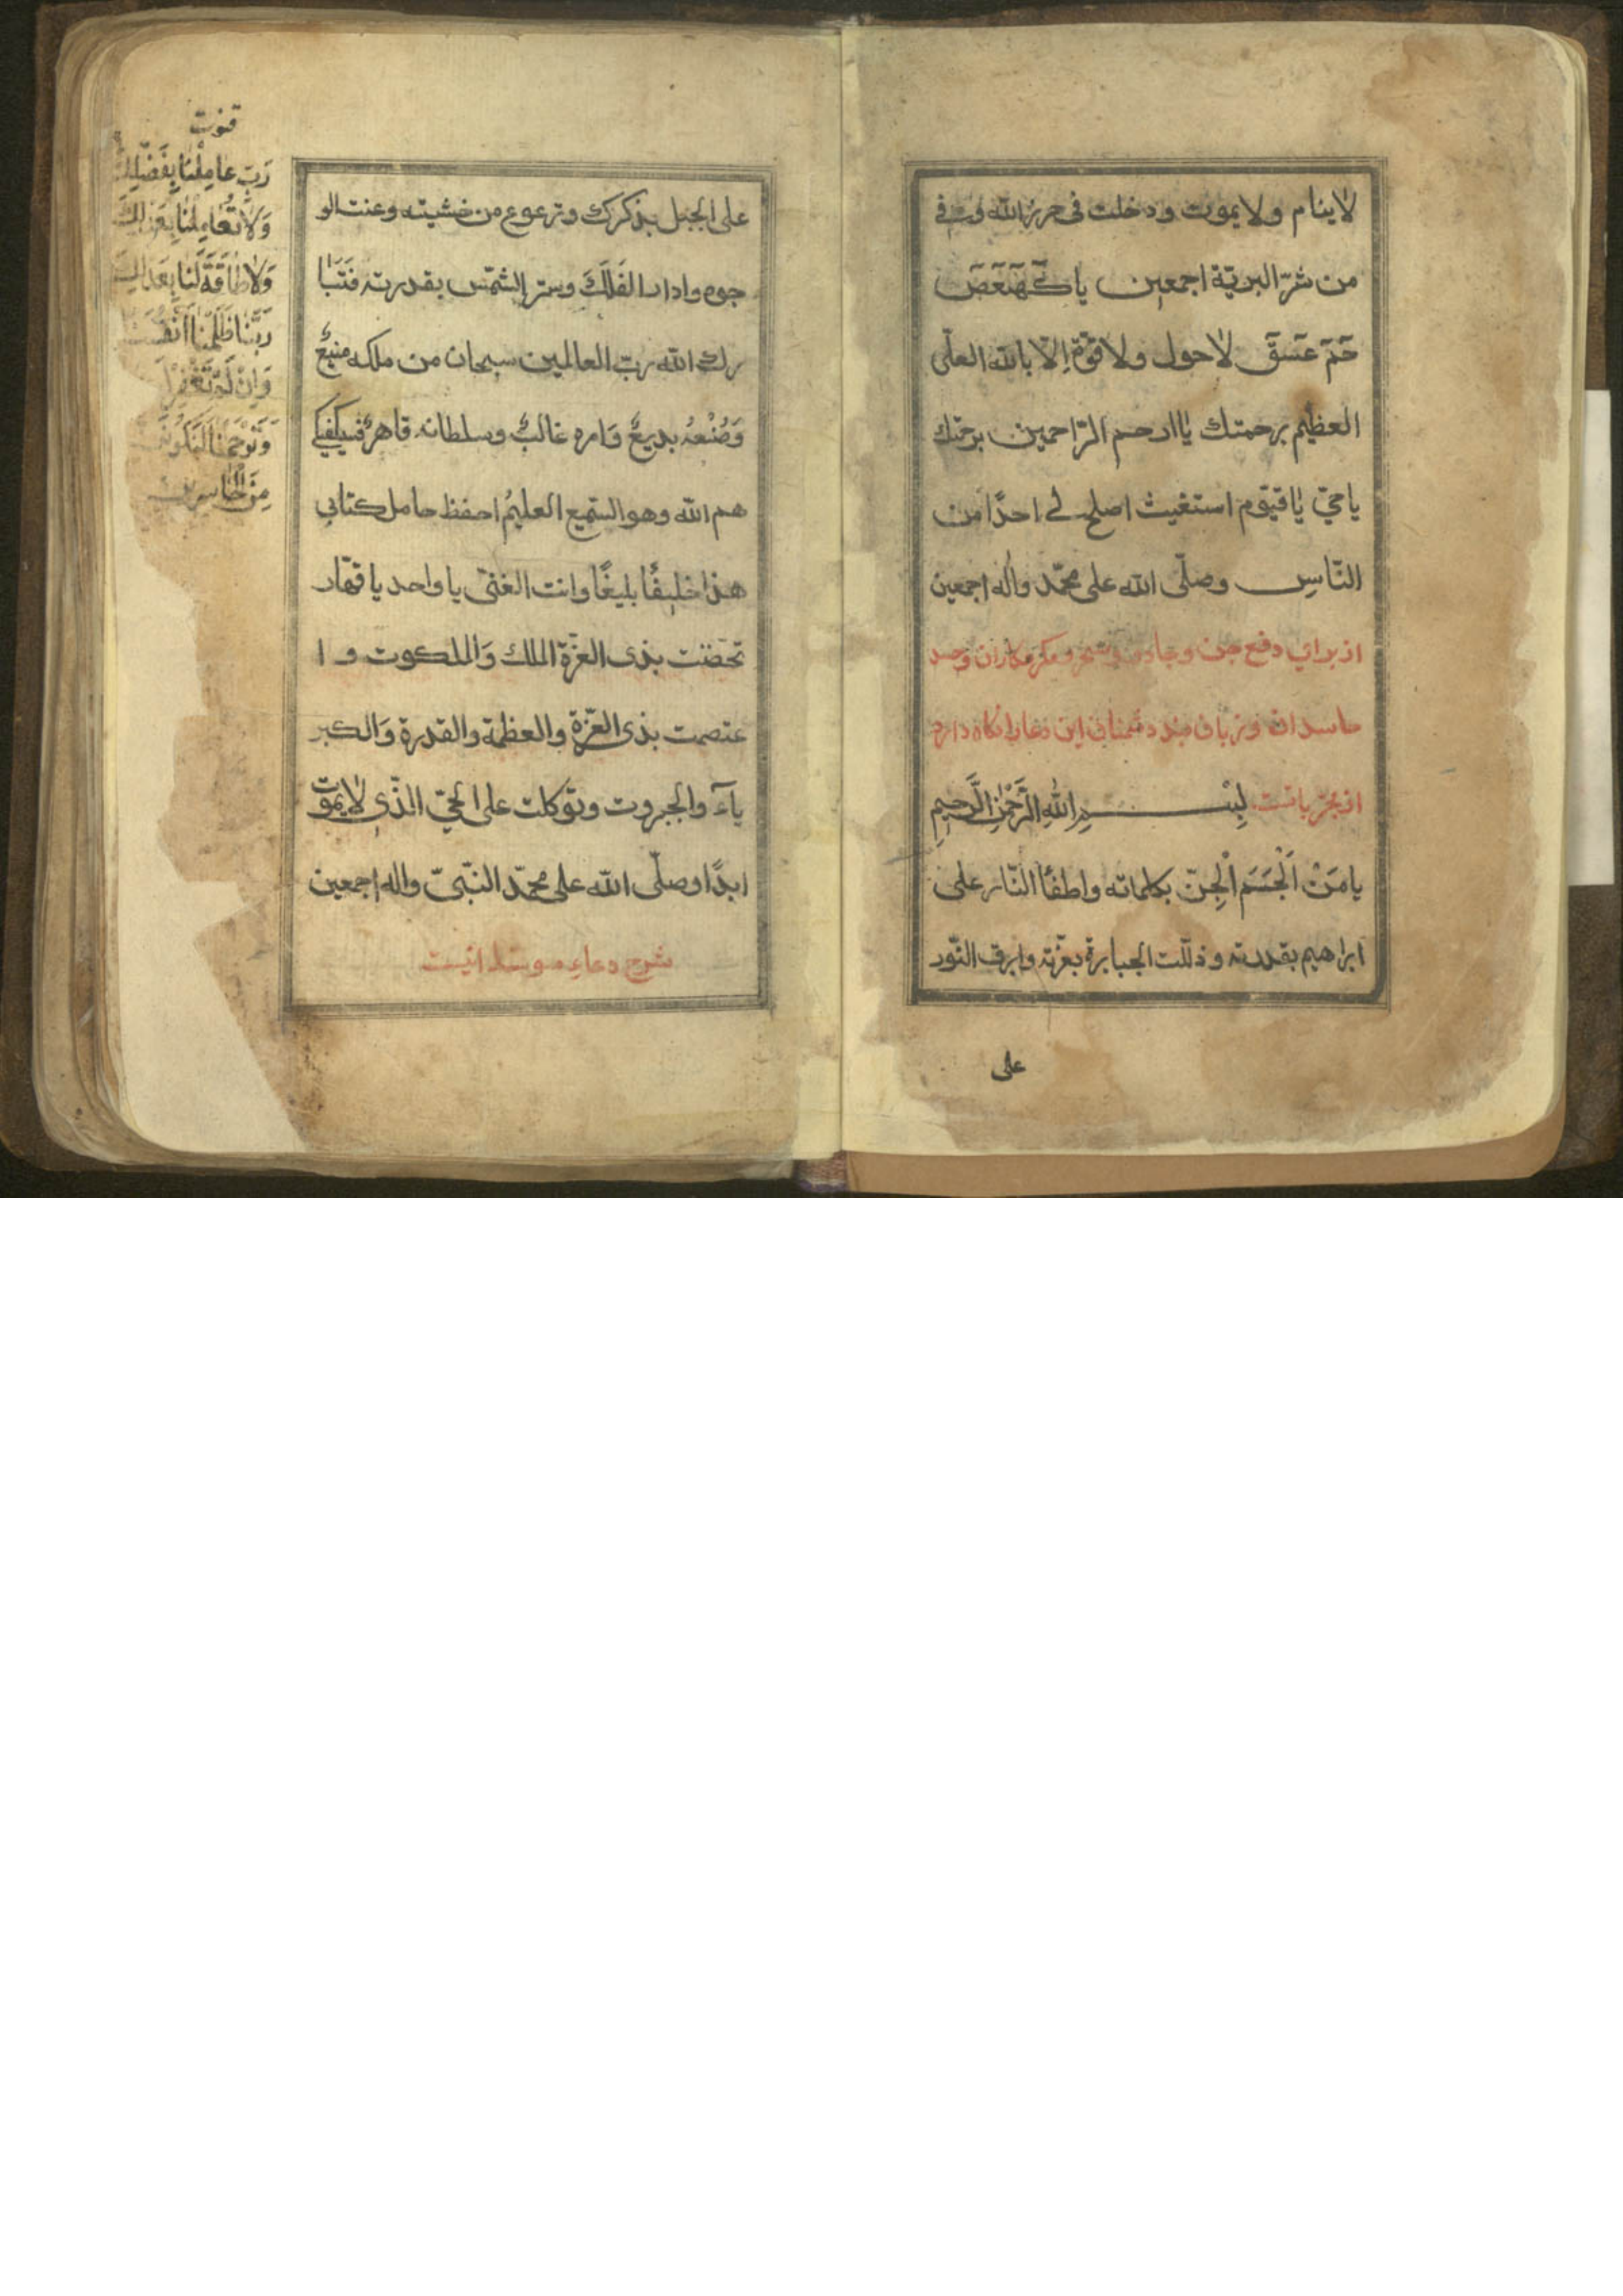 لاينام ولا يموت ودخلت فى حرز الله وفى
من شرّ البريّة اجمعين ياكهيعص
حم عسق لاحول ولا قوّة الّا بالله العلّى
العظيم برحمتك ياارحم الرّاحمين برحمتك
ياحيّ ياقيّوم استغيث اصلح لى احدًا من
النّاسِ وصلّى الله على محمّد واله اجمعين
از براي دفع جن و جادو و سحر و مكر مكاران وحسد
حاسدان و زبان بند دشمنان اين دعارا نكاه دارد
از مجرّباتست بِسْمِ اللهِ الرَّحْمٰنِ الرَّحيمِ
يامَنْ اَلْجَسَمَ الْجِنّ بكلماته واطفأ النّار على
ابراهيم بقدرته وذلّلت الجبابرة بعزّته وابرق النّور
على
على الجبل بذكرك وترعوع من خشيته وعنت الو
جوه وادار الفَلَكَ وستر الشمّس بقدرته فَتَبا
رك الله ربّ العالمين سبحان من ملكه منيعٌ
وَصُنْعهُ بديعٌ وَامره غالبٌ وسلطانه قاهرٌ فسيكفيكـ
هم الله وهو السّميع العليمُ احفظ حامل كتابى
هذا خليفًا بليغًا وانت الغنىّ يا واحد يا قهّار
تحصّنت بذى العزّة الملك وَالملكوت و ا
عتصمت بذى العزّة والعظمة والقدرة وَالكبر
يآء والجبروت وتوكلت على الحيّ الذّى لايموت
ابدًا وصلّى الله على محمّد النّبىّ واله اجمعين
شرح دعاء اينست
قنوت
رَبِّ عامِلْنا بِفَضْلِكَ
وَلا تُعامِلْنا بِعَدْلِكَ
وَلا طاقَةَ لَنا بِعَدْلِكَ
رَبَّنا ظَلَمْنا اَنْفُسَنا
وَاِنْ لَمْ تَغْفِرْ
وَتَرْحَمْنا لَنَكُونَنَّ
مِنَ الْخاسِرينَ